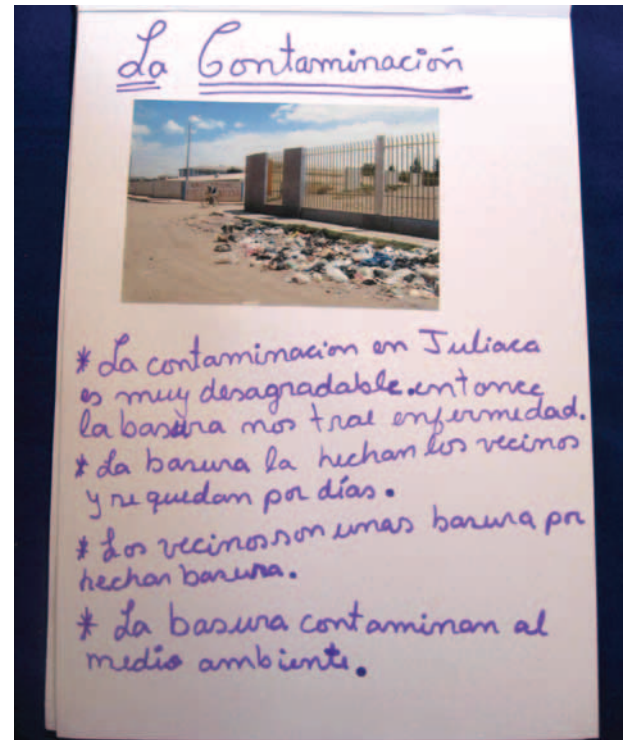 La Contaminación
* La contaminacion en Juliaca
es muy desagradable.entonce
la basura nos trae enfermedad.
* La basura la hechan los vecinos
y se quedan por días.
* Los vecinos son unas basura por
hechar basura.
* La basura contaminan al
medio ambiente.